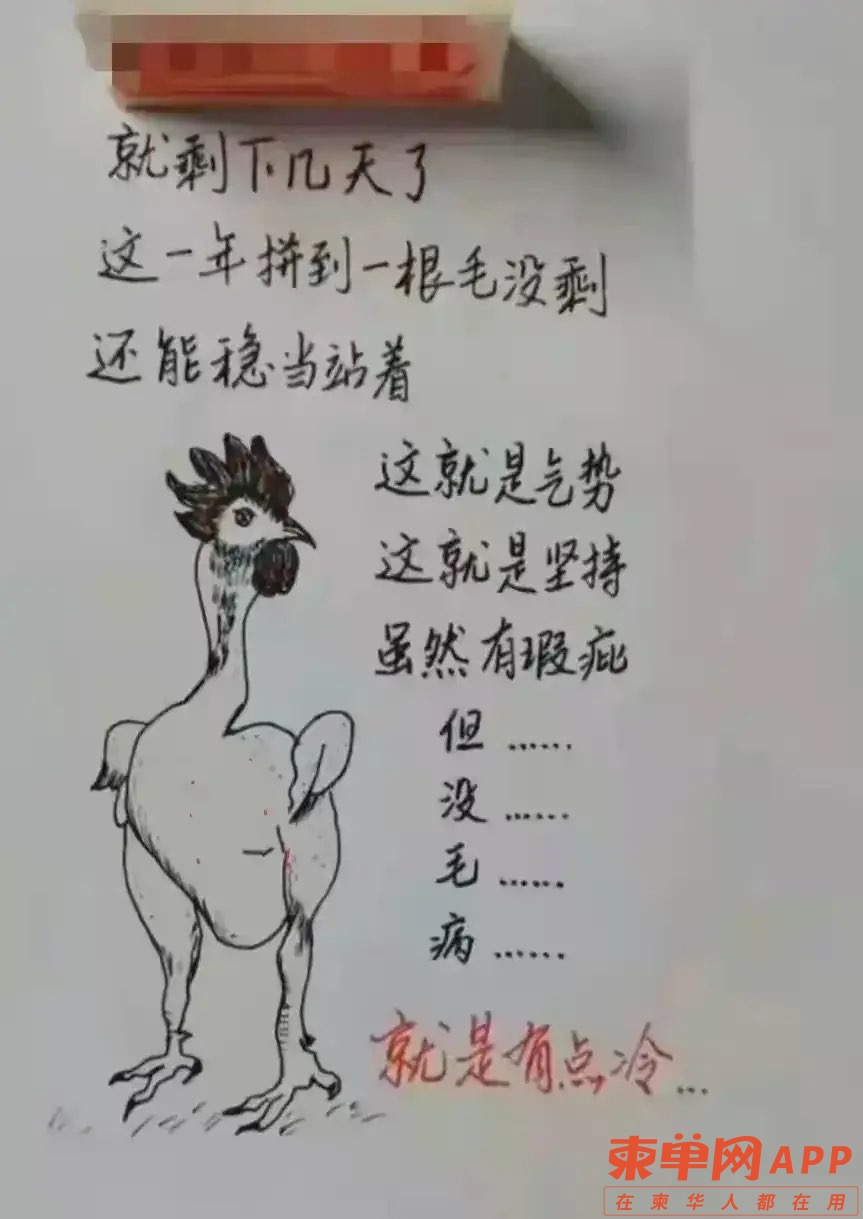 就剩下几天了
这一年拼到一根毛没剩
还能稳当站着
这就是气势
这就是坚持
虽然有瑕疵
但……
没……
毛……
病……
就是有点冷…
柬单网APP
在柬华人都在用